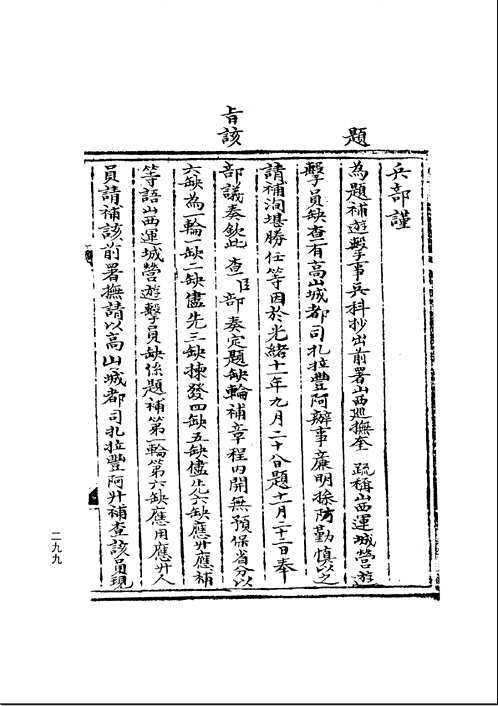 兵部謹
題
為題補遊擊事兵科抄出前署山西巡撫奎 疏稱山西運城營遊
擊員缺查有高山城都司扎拉豐阿辦事廉明操防勤慎以之
請補洵堪勝任等因於光緒十一年九月二十八日題十一月二十二日奉
旨該
部議奏欽此查臣部奏定題缺輪補章程內開無預保省分以
六缺為一輪一缺二缺儘先三缺揀發四缺五缺儘先六缺應升應補
等語山西運城營遊擊員缺係題補第一輪第六缺應用應升人
員請補該前署撫請以高山城都司扎拉豐阿升補查該員現
二九九